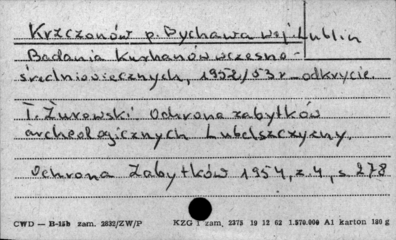 Krzczonów p. Bychawa woj. Lublin
Badania kurhanów wczesno-
średniowiecznych, 1952/53 r. odkrycie.
T. Żurowski. Ochrona zabytków
archeologicznych Lubelszczyzny.
Ochrona Zabytków 1954, z. 4, s. 278
CWD — B-15b zam. 2832/ZW/P KZG 1 zam. 2373 19 12 62 1.370.000 A1 karton 180 g